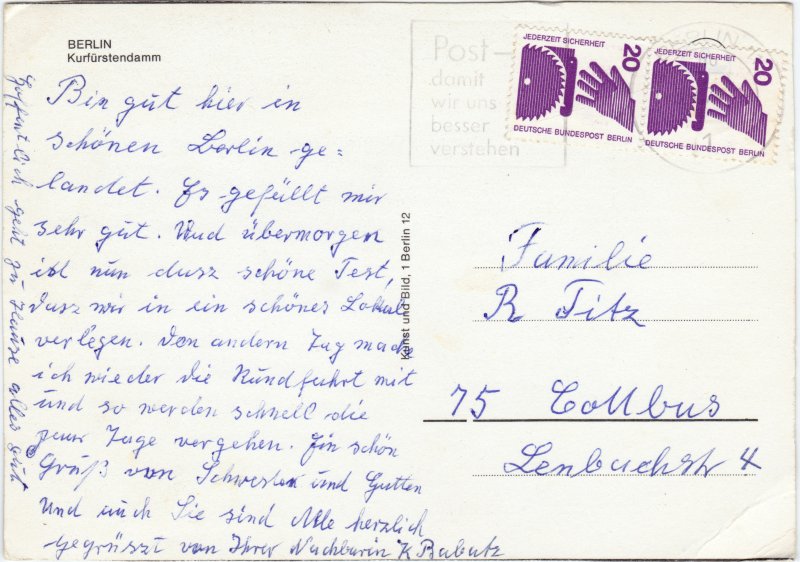 BERLIN
Kurfürstendamm
Bin gut hier in
schönen Berlin ge=
landet. Es gefällt mir
sehr gut. Und übermorgen
ist nun dasz schöne Fest,
dasz wir in ein schönes Lokal
verlegen. Den andern Tag mache
ich wieder die Rundfahrt mit
und so werden schnell die
paar Tage vergehen. Ein schön
Gruß von Schwester und Gatten
Und auch Sie sind Alle herzlich
gegrüszt von Ihrer Nachbarin K Babatz
Hoffentlich geht zu Hause alles gut
Kunst und Bild, 1 Berlin 12
Post-
damit
wir uns
besser
verstehen
JEDERZEIT SICHERHEIT
20
DEUTSCHE BUNDESPOST BERLIN
JEDERZEIT SICHERHEIT
20
DEUTSCHE BUNDESPOST BERLIN
Familie
R Titz
75 Cottbus
Lenbachstr 4